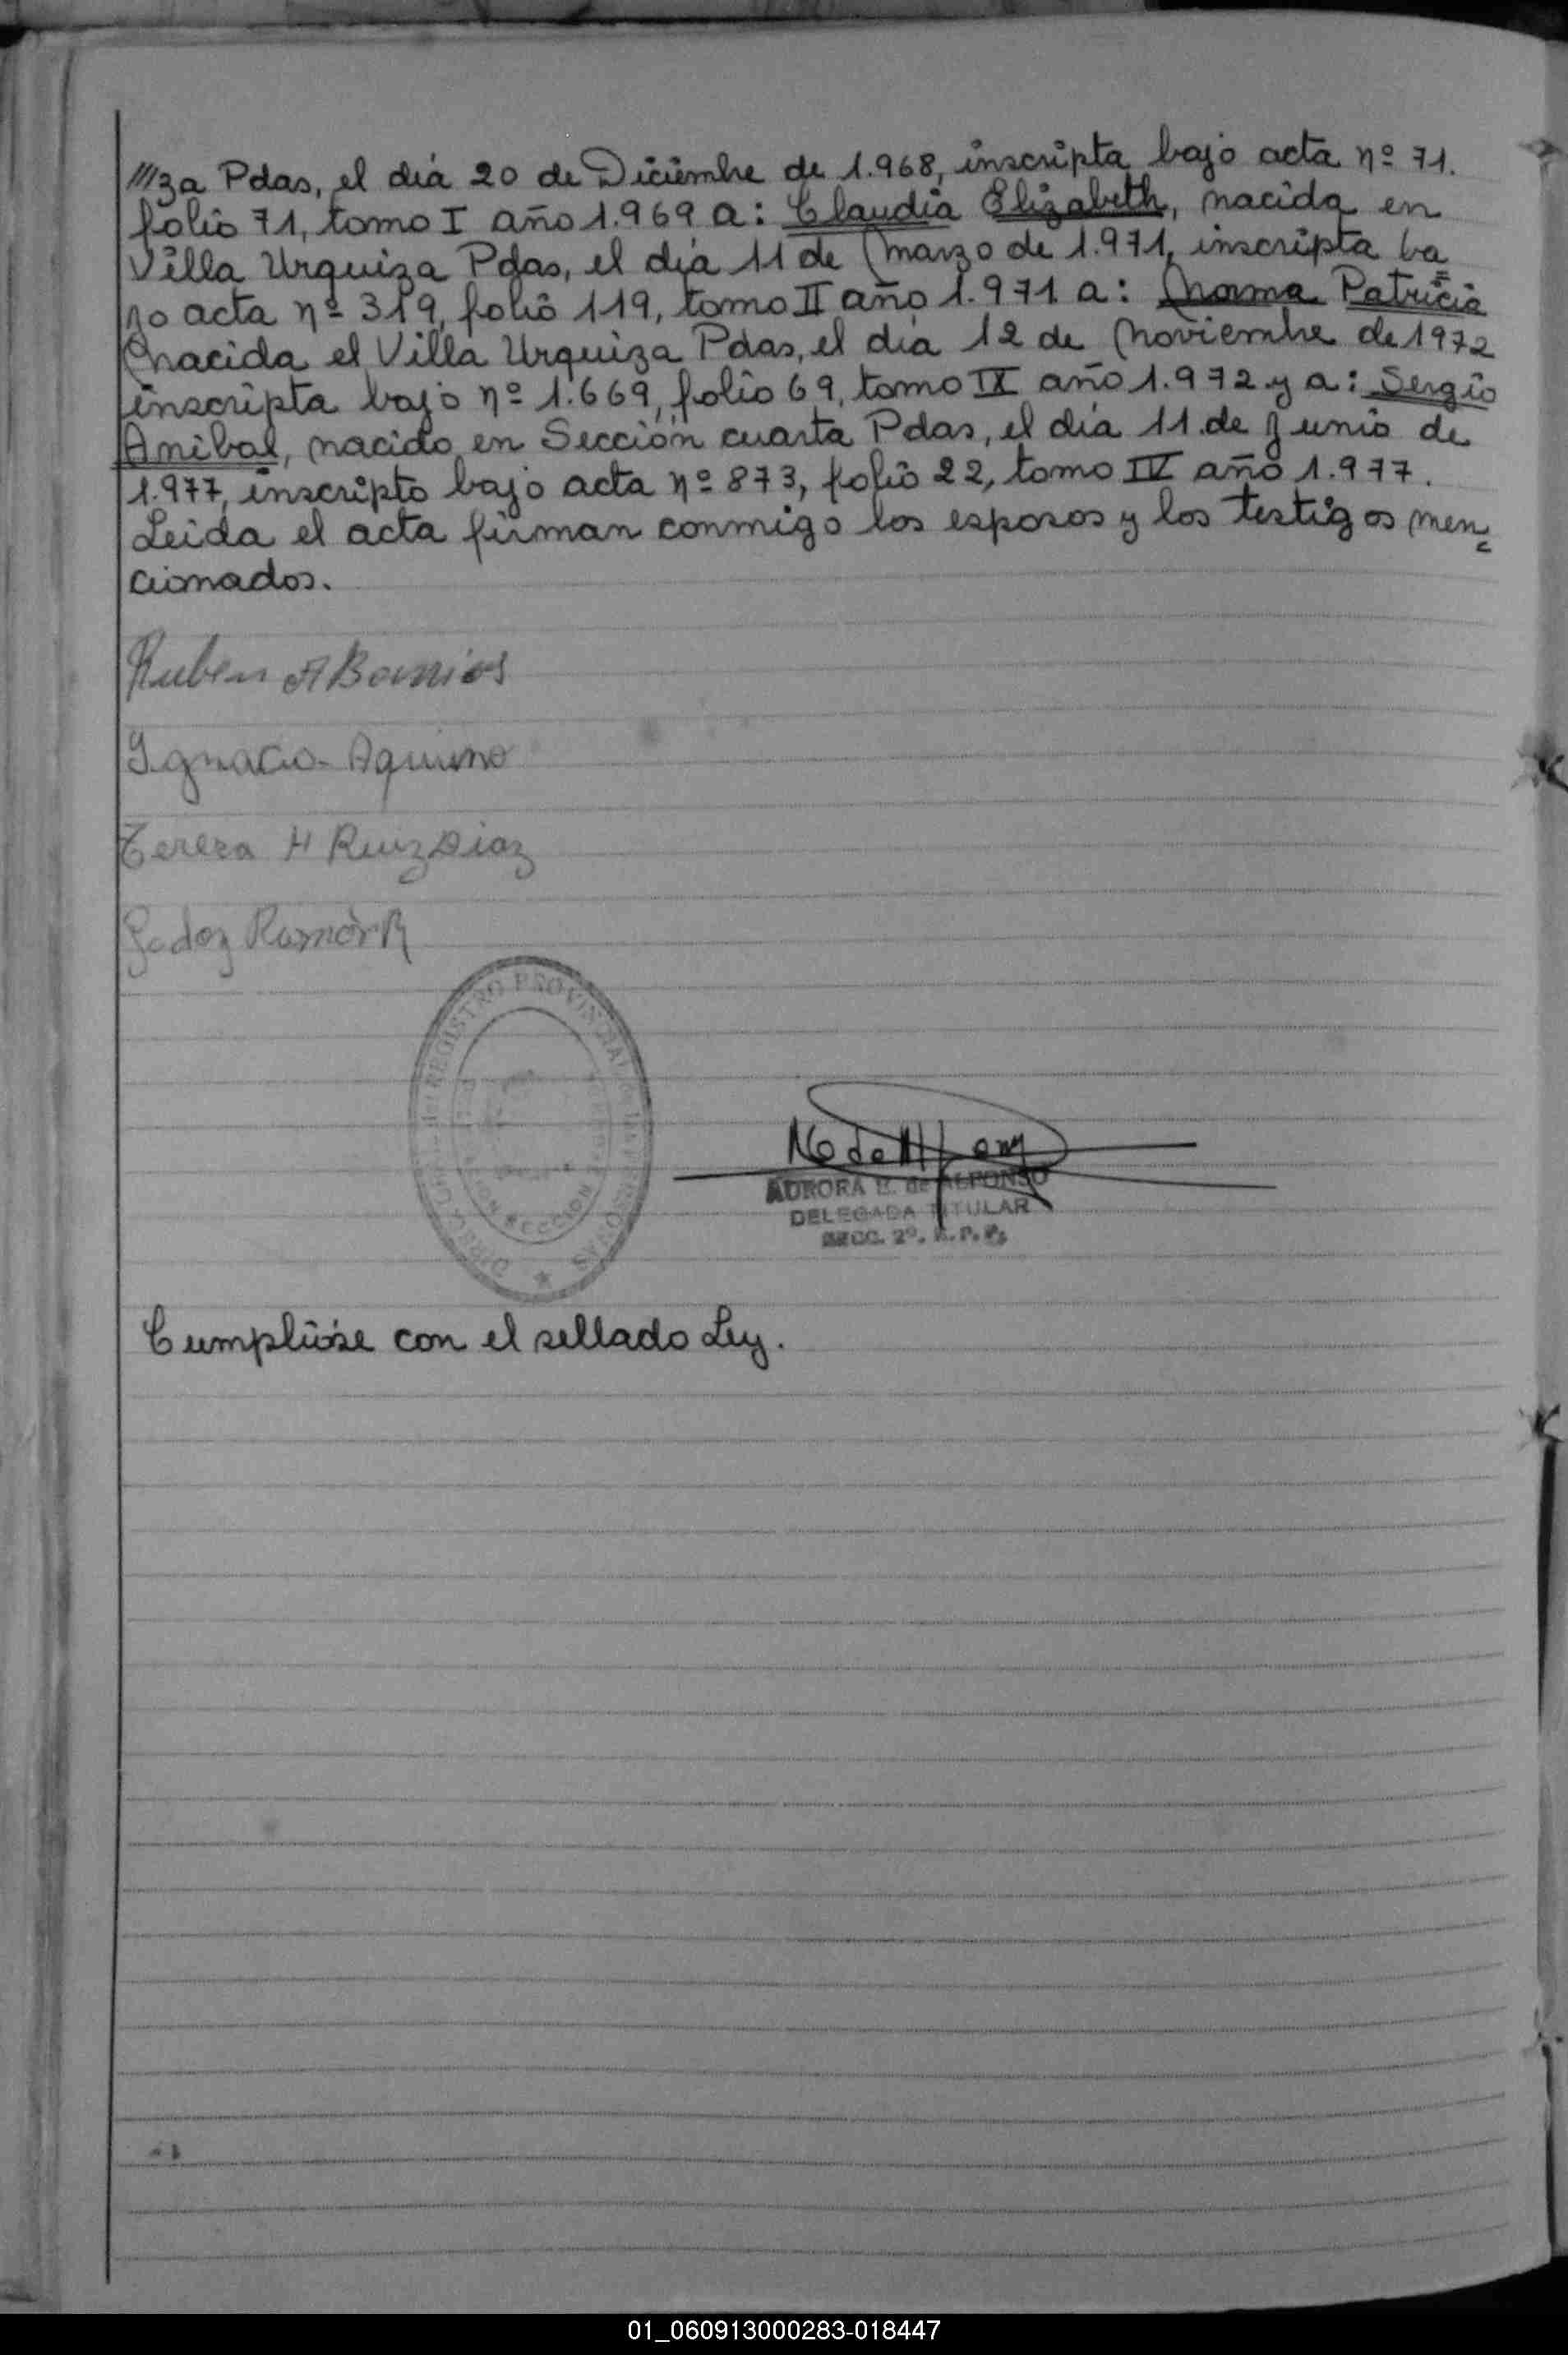 ///za Pdas, el día 20 de Diciembre de 1.968, inscripta bajo acta nº 71.
folio 71, tomo I año 1.969 a: Claudia Elizabeth, nacida en
Villa Urquiza Pdas, el día 11 de Marzo de 1.971, inscripta ba=
jo acta nº 319, folio 119, tomo II año 1.971 a: Norma Patricia
Nacida el Villa Urquiza Pdas, el día 12 de Noviembre de 1972
inscripta bajo nº 1.669, folio 69, tomo IX año 1.972 y a: Sergio
Anibal, nacido en Sección cuarta Pdas, el día 11 de Junio de
1.977, inscripto bajo acta nº 873, folio 22, tomo IV año 1.977.
Leida el acta firman conmigo los esposos y los testigos men=
cionados.
Ruben A Barrios
Ignacio Aquino
Tereza H Ruiz Diaz
Godoy Ramón R
REGISTRO PROVINCIAL de las PERSONAS
SECCION
AURORA E. de ALFONSO
DELEGADA TITULAR
SECC. 2º. R.P.P.
Cumplióse con el sellado Ley.
01_060913000283-018447